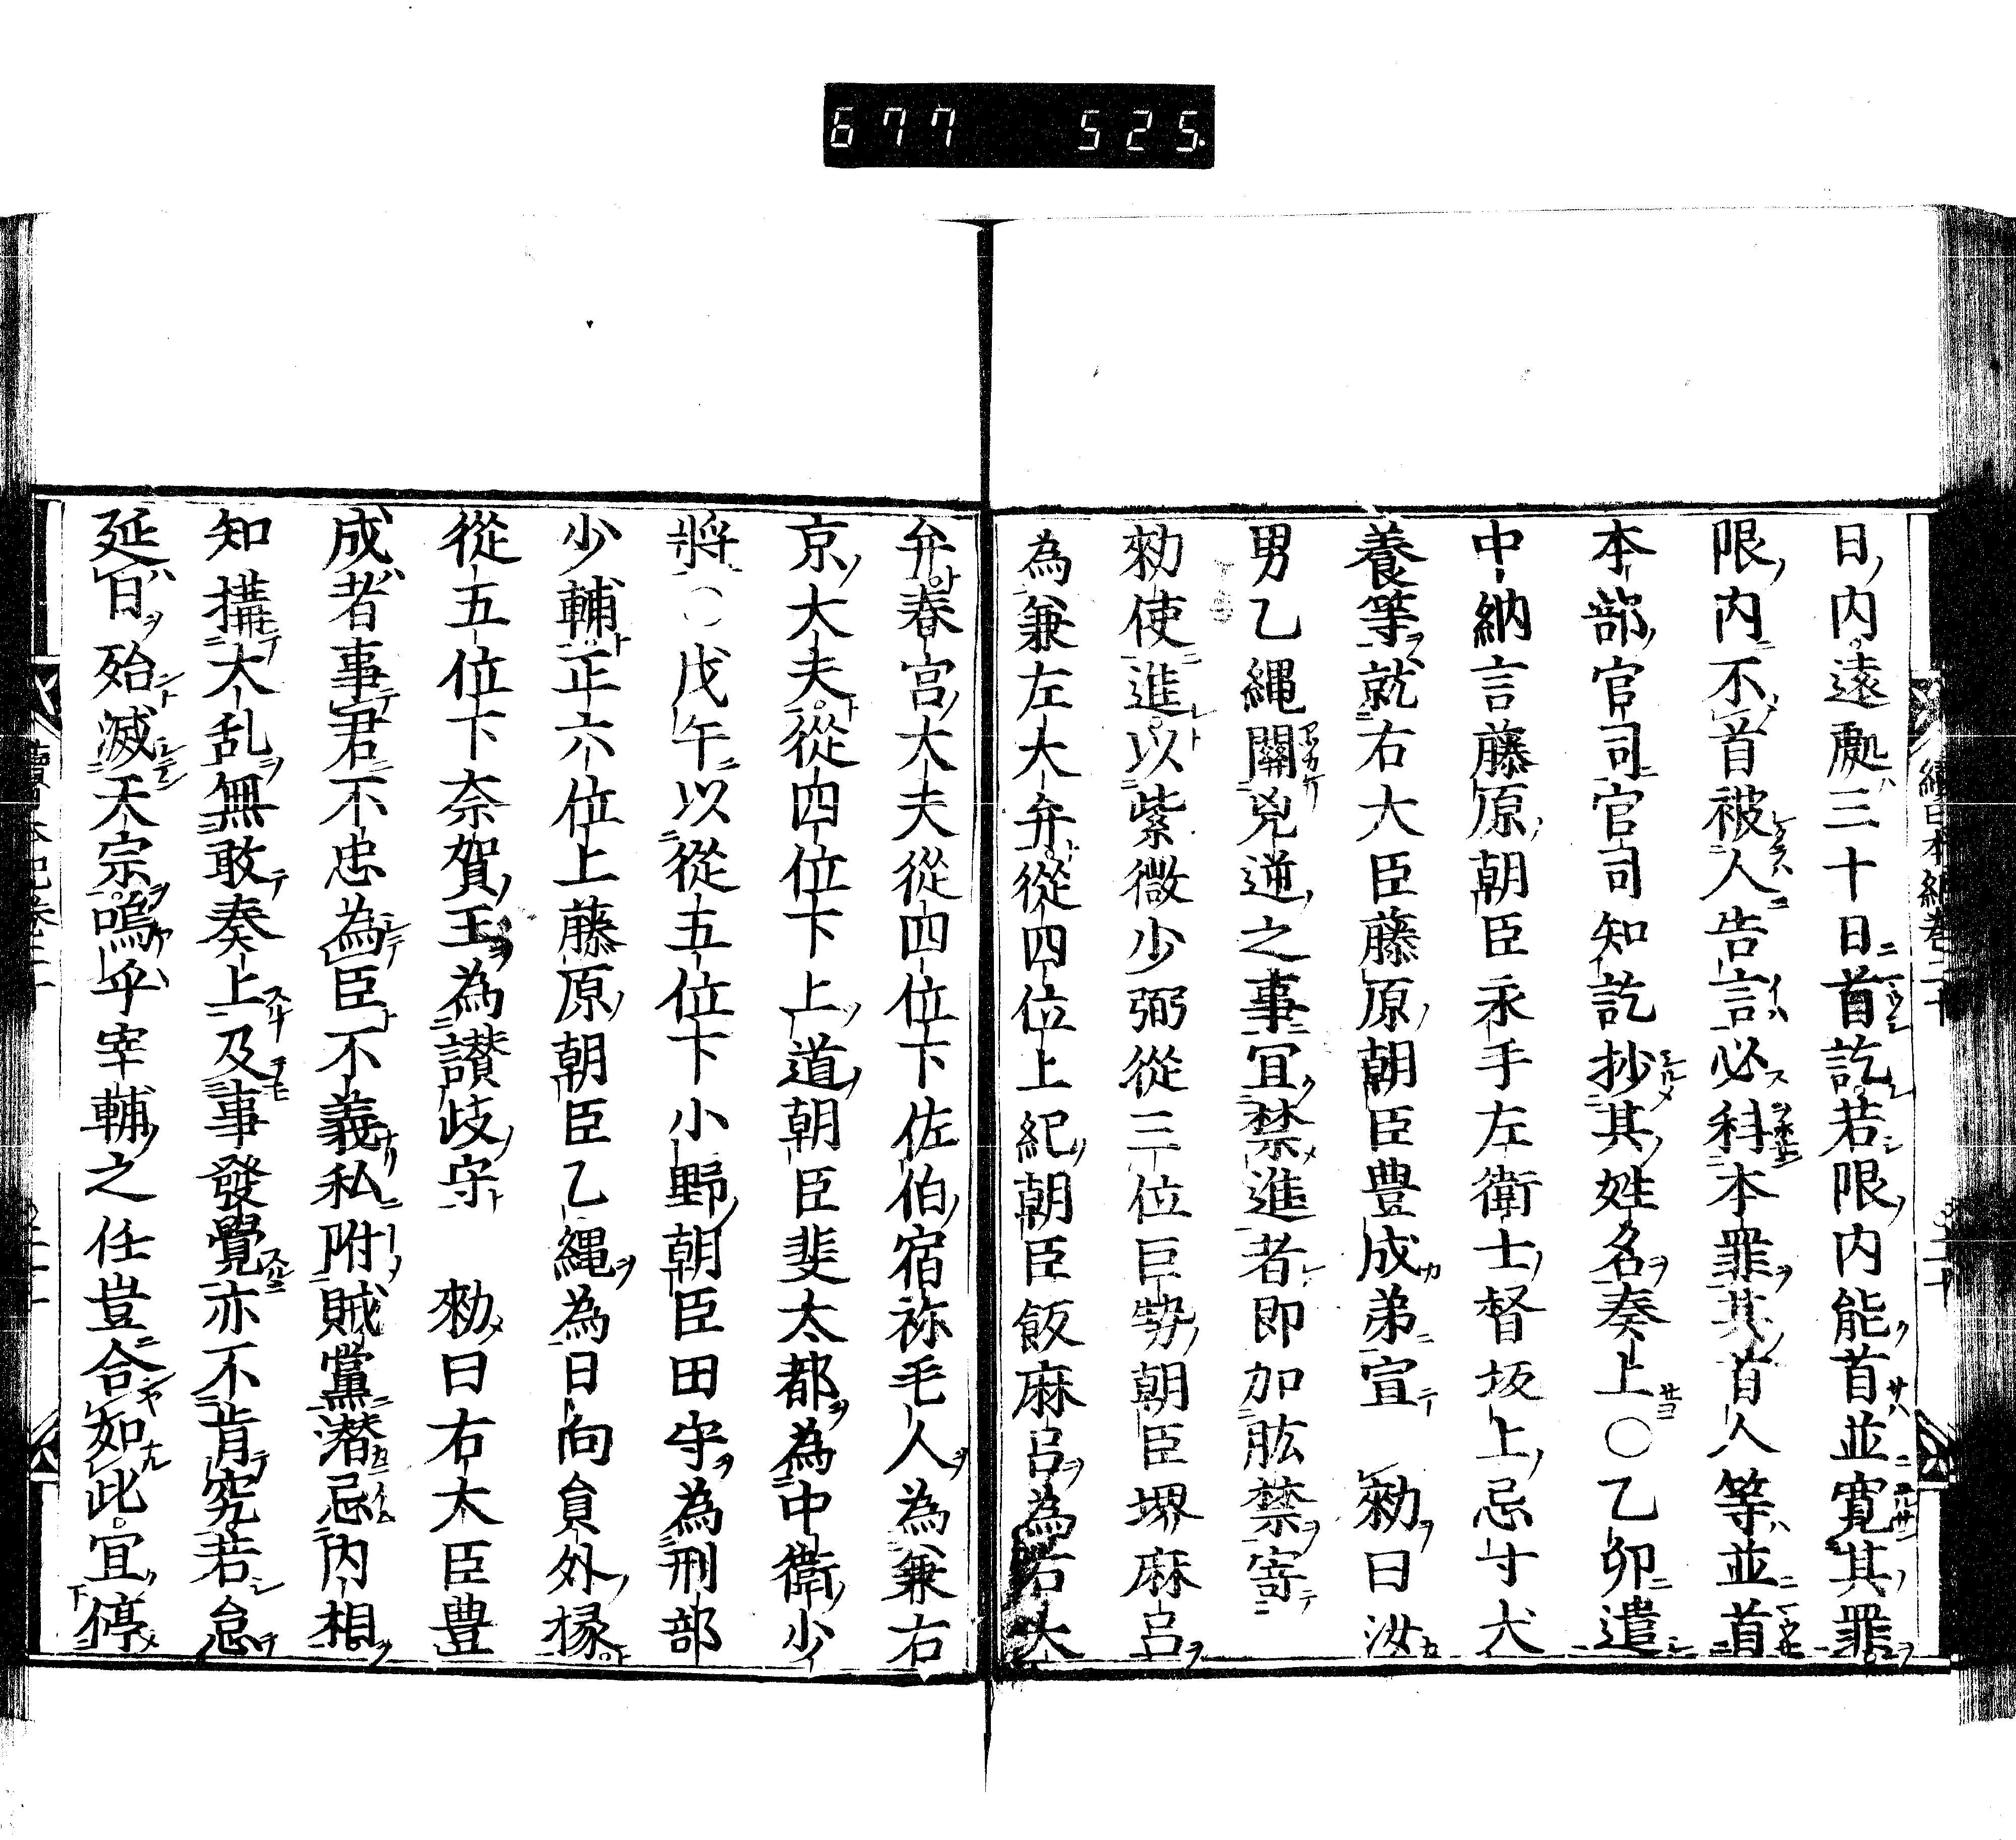 677 525
日内遠處三十日首訖若限内能首並寛其罪
限内不首被人告言必科本罪其首人等並首
本部官司官司知訖抄其姓名奏上〇乙卯遣
中納言藤原朝臣永手左衛士督坂上忌寸犬
養等就右大臣藤原朝臣豊成弟宣 勅曰汝
男乙縄關兇逆之事宜禁進者即加肱禁寄
勅使進以紫微少弼從三位巨勢朝臣堺麻呂
為兼左大弁從四位上紀朝臣飯麻呂為右大
弁春宮大夫從四位下佐伯宿祢毛人為兼右
京大夫從四位下上道朝臣斐太都為中衛少
將〇戊午以從五位下小野朝臣田守為刑部
少輔正六位上藤原朝臣乙縄為日向員外掾
從五位下奈賀王為讃岐守 勅曰右大臣豊
成者事君不忠為臣不義私附賊黨潜忌内相
知搆大乱無敢奏上及事發覺亦不肯究若怠
延日殆滅天宗嗚乎宰輔之任豈合如此宜停